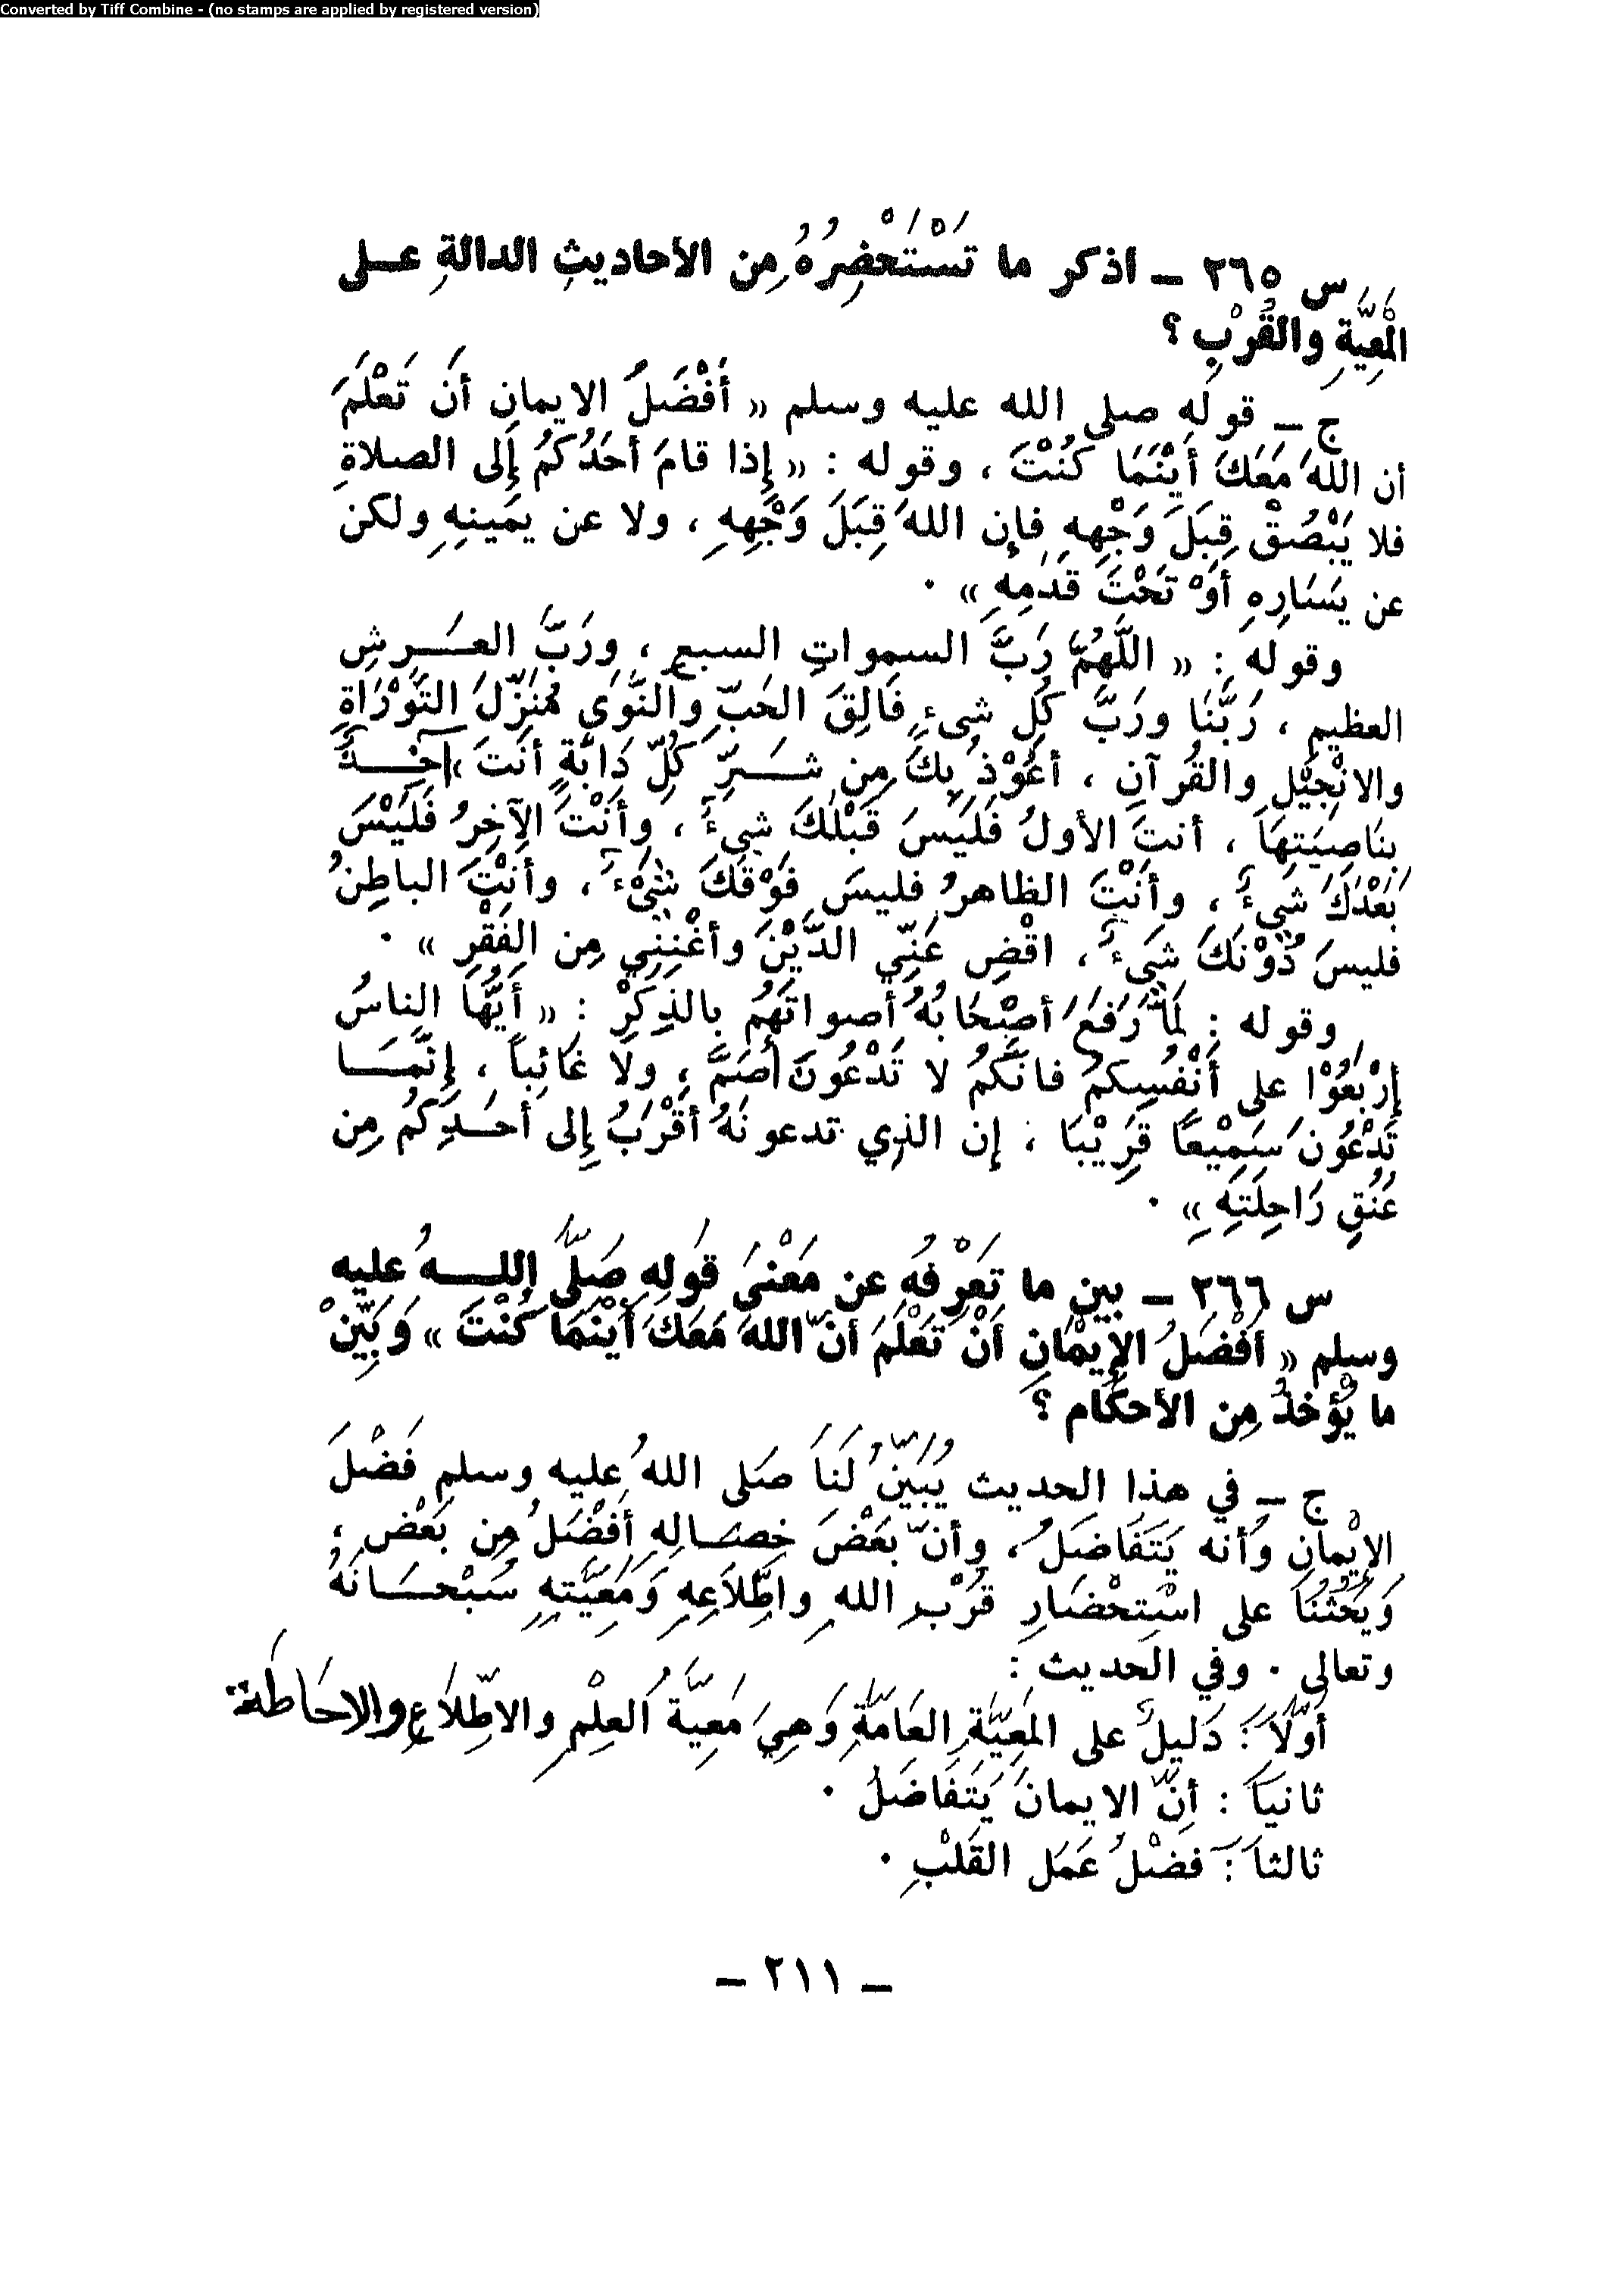 Converted by Tiff Combine - (no stamps are applied by registered version)
س ٢٦٥ – اذكر ما تَسْتَحْضِرُهُ مِن الأحاديثِ الدالةِ عــلى
المَعِيَّةِ والقُرْبِ ؟
ج – قوله صلى الله عليه وسلم « أَفْضَلُ الايمانِ أن تَعْلَمَ
أن اللهَ مَعَكَ أَيْنَمَا كُنْتَ ، وقوله : « إِذا قامَ أحَدُكُمُ إِلى الصلاةِ
فلا يَبْصُقْ قِبَلَ وَجْهِهِ فإِن اللهَ قِبَلَ وَجْهِهِ ، ولا عن يمَينِهِ ولكن
عن يَسَارِهِ أَوْ تَحْتَ قَدَمِهِ » .
وقوله : « اللَّهُمَّ رَبَّ السمواتِ السبعِ ، ورَبَّ العَــرشِ
العظيمِ ، رَبَّنَا ورَبَّ كُلِ شيءٍ فَالِقَ الحَبِّ والنَّوَى مُنَزِّلَ التَّوْرَاةِ
والانْجِيْلِ والقُرآنِ ، أعُوْذُ بِكَ مِن شَــرِّ كُلِّ دَابَّةٍ أنتَ آخِــذٌ
بِنَاصِيَتِهَا ، أنتَ الأولُ فَلَيْسَ قَبْلَكَ شيءٌ ، وأنْتَ الآخِرُ فَلَيْسَ
بَعْدَكَ شيءٌ ، وأنْتَ الظاهرُ فليسَ فَوْقَكَ شَيْءٌ ، وأنْتَ الباطِنُ
فليسَ دُوْنَكَ شَيءٌ ، اقْضِ عَنِّي الدَّيْنَ وأغْنِنِي مِن الفَقْرِ » .
وقوله : لَمَّا رَفَعَ أصْحَابُهُ أصواتَهُم بالذِكْرِ : « أيُّهَا الناسُ
إرْبَعُوْا على أَنْفُسِكمُ فانَّكُمُ لا تَدْعُونَ أصَمَّ ، ولا غَائِباً ، إنَّمَــا
تَدْعُونَ سَمِيْعًا قَرِيْبَا ، إن الذي تدعونَهُ أقْرَبُ إِلى أحَــدِكُم مِن
عُنُقِ رَاحِلَتِهِ » .
س ٢٦٦ – بين ما تَعْرِفُه عن مَعْنَى قولِهِ صَلَّى اللــهُ عليه
وسلم « أَفْضَلُ الإِيْمَانِ أَنْ تَعْلَمَ أنَّ اللهَ مَعَكَ أَيْنَمَا كُنْتَ » وَبَيِّنْ
ما يُؤْخذُ مِن الأحكام ؟
ج – في هذا الحديث يُبَيِّنُ لَنَا صَلى اللهُ عليه وسلم فَضْلَ
الإِيْمانِ وَأنه يَتَفَاضَلُ ، وأنَّ بَعْضَ خِصَــالِهِ أَفْضَلُ مِن بَعْضٍ ،
وَيَحُثُنَا على اسْتِحْضَارِ قُرْبِ اللهِ واطِّلاَعِهِ وَمَعِيَّتهِ سُبْحــانَهُ
وتعالى . وفي الحديث :
أوّلاً : دَليلٌ على المَعِيَّةِ العَامَّةِ وَهِيَ مَعِيَّةُ العِلْمِ والاطِّلاَعِ والاحَاطَة
ثانياً : أنَّ الايمانَ يَتَفَاضَلُ .
ثالثاً : فضْلُ عَمَلِ القَلْبِ .
– ٢١١ –